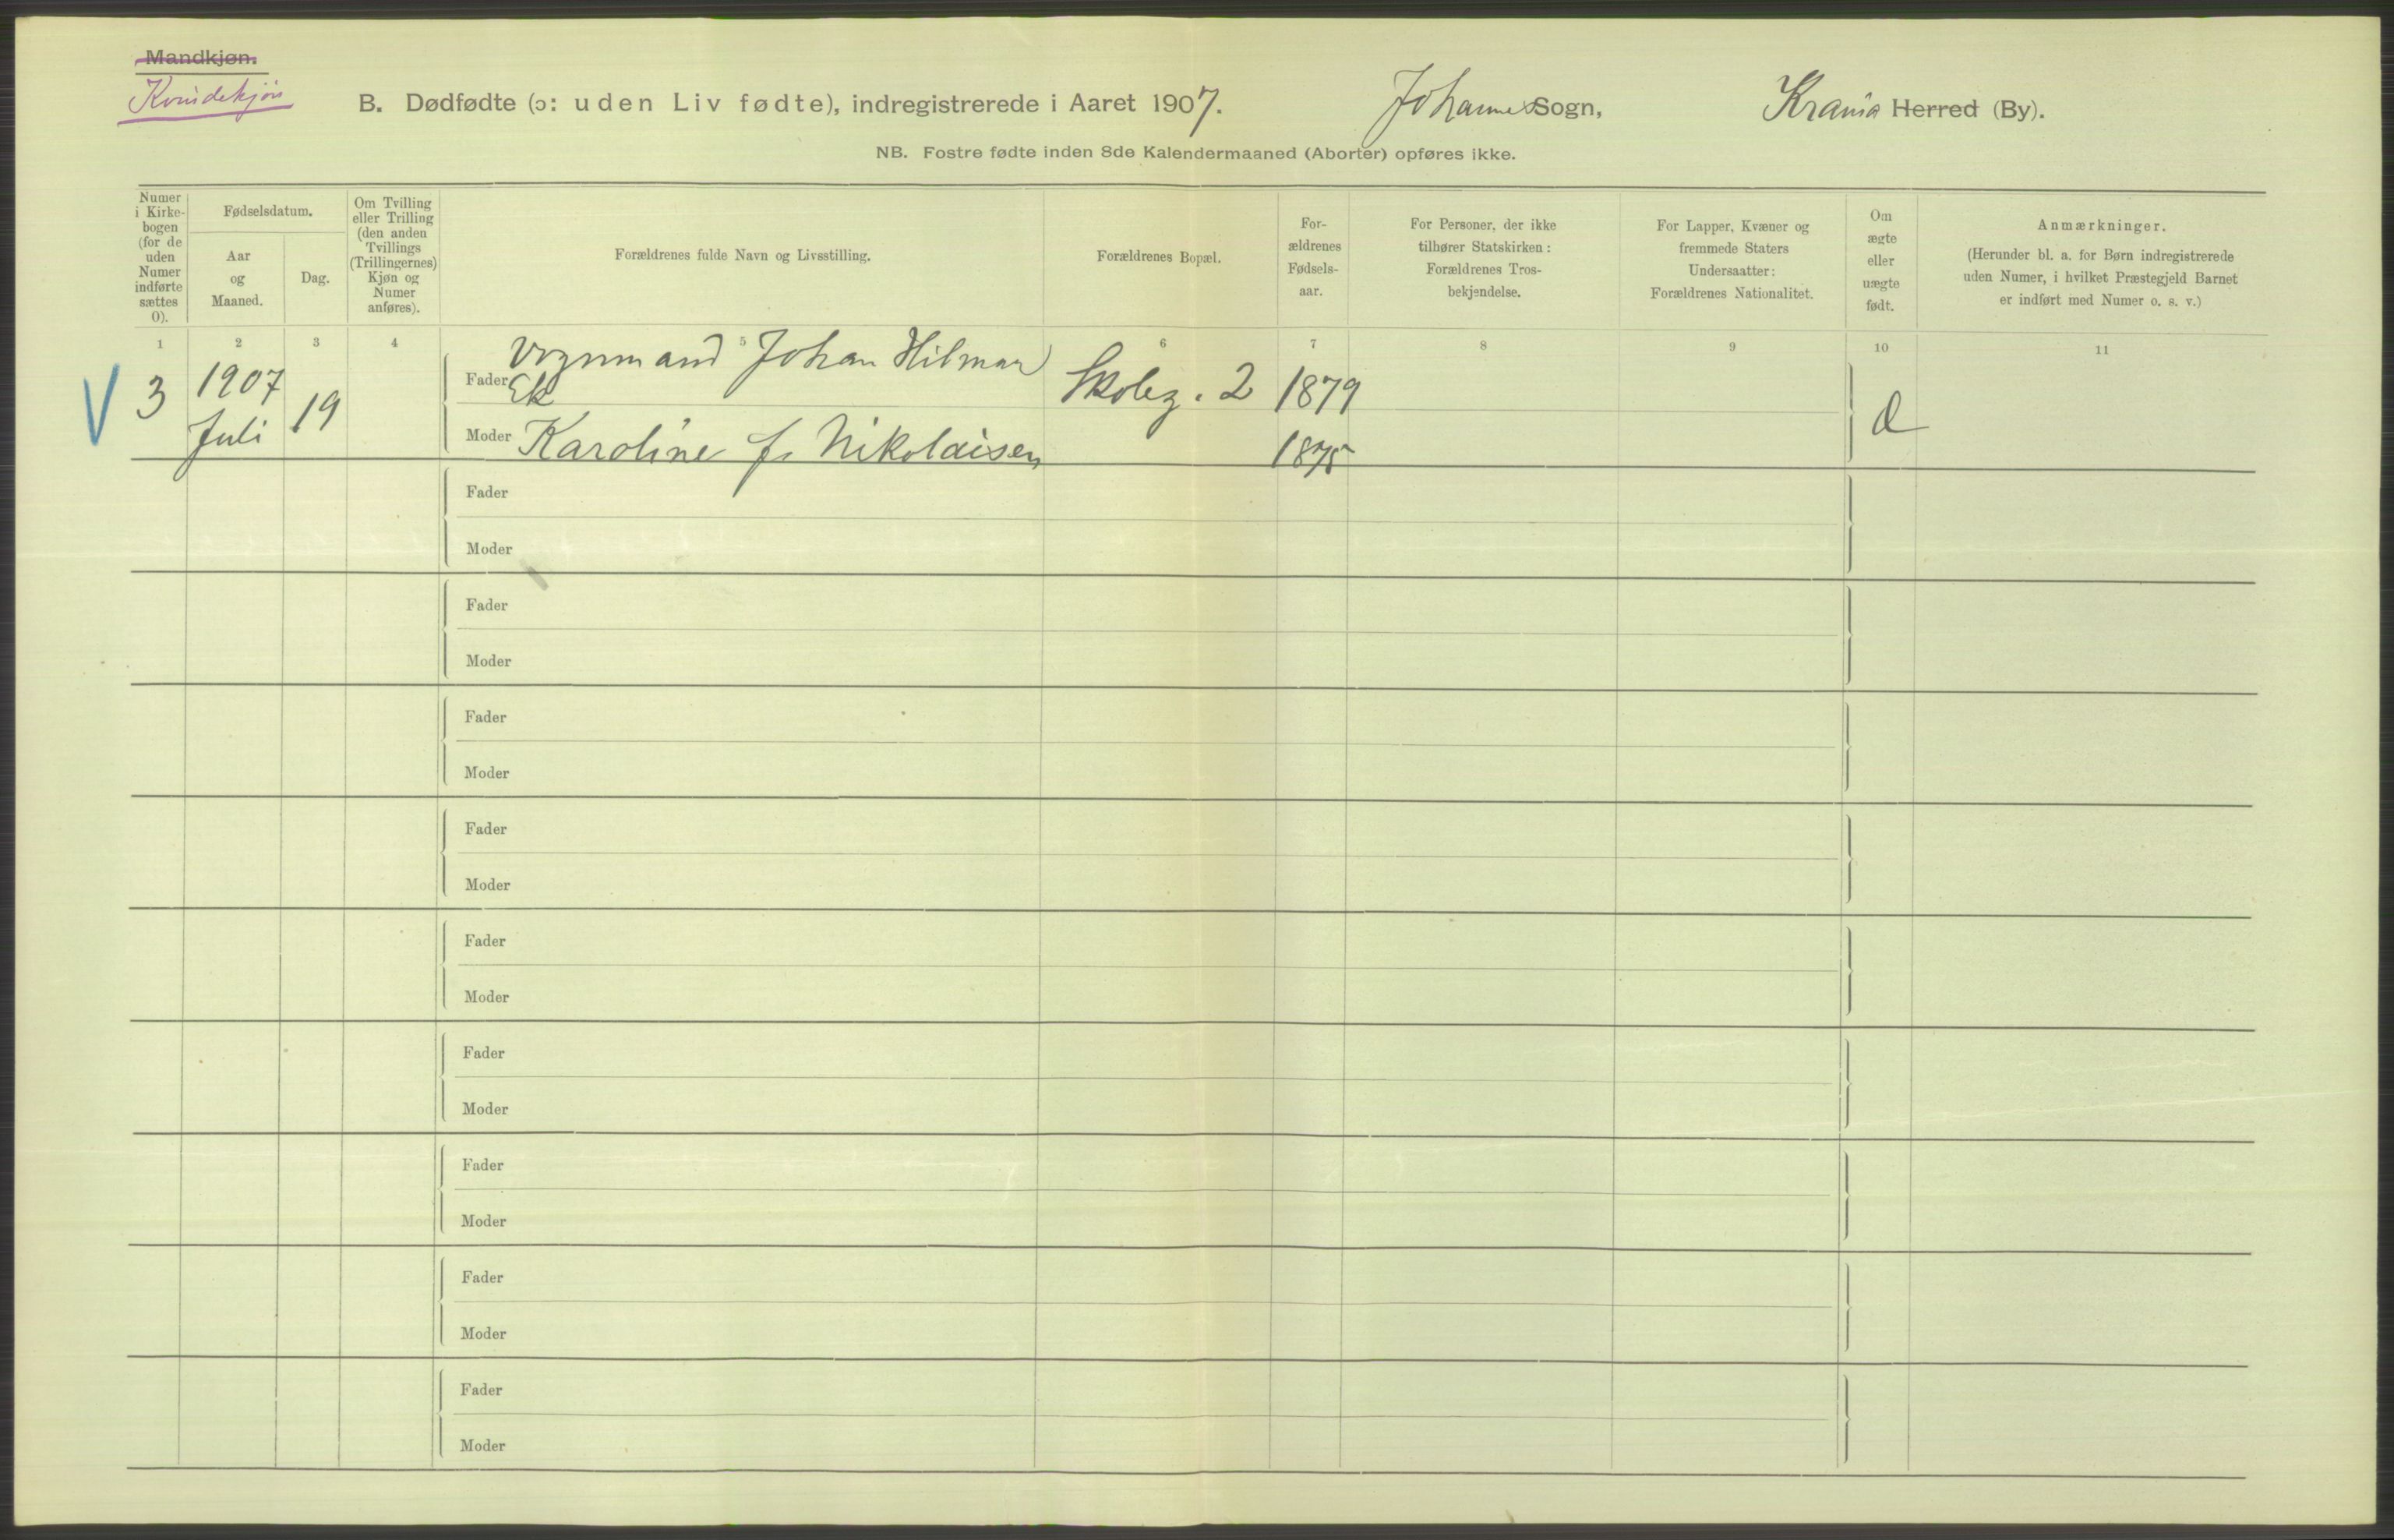 Mandkjøn.
Kvindekjøn
B. Dødfødte (ɔ: uden Liv fødte), indregistrerede i Aaret 1907.
Johannes Sogn,
Krania Herred (By).
NB. Fostre fødte inden 8de Kalendermaaned (Aborter) opføres ikke.
Numer
i Kirke-
bogen
(for de
uden
Numer
indførte
sættes
0).
Fødselsdatum.
Aar
og
Maaned.
Dag.
Om Tvilling
eller Trilling
(den anden
Tvillings
(Trillingernes)
Kjøn og
Numer
anføres).
Forældrenes fulde Navn og Livsstilling.
Forældrenes Bopæl.
For-
ældrenes
Fødsels-
aar.
For Personer, der ikke
tilhører Statskirken:
Forældrenes Tros-
bekjendelse.
For Lapper, Kvæner og
fremmede Staters
Undersaatter:
Forældrenes Nationalitet.
Om
ægte
eller
uægte
født.
Anmærkninger.
(Herunder bl. a. for Børn indregistrerede
uden Numer, i hvilket Præstegjeld Barnet
er indført med Numer o. s. v.)
1 2 3 4 5 6 7 8 9 10 11
V 3 1907 Juli 19
Vognmand Johan Hilmar
Fader Ek
Skoleg. 2 1879
Moder Karoline f. Nikolaisen 1875
Fader
Moder
Fader
Moder
Fader
Moder
Fader
Moder
Fader
Moder
Fader
Moder
Fader
Moder
Fader
Moder
Fader
Moder